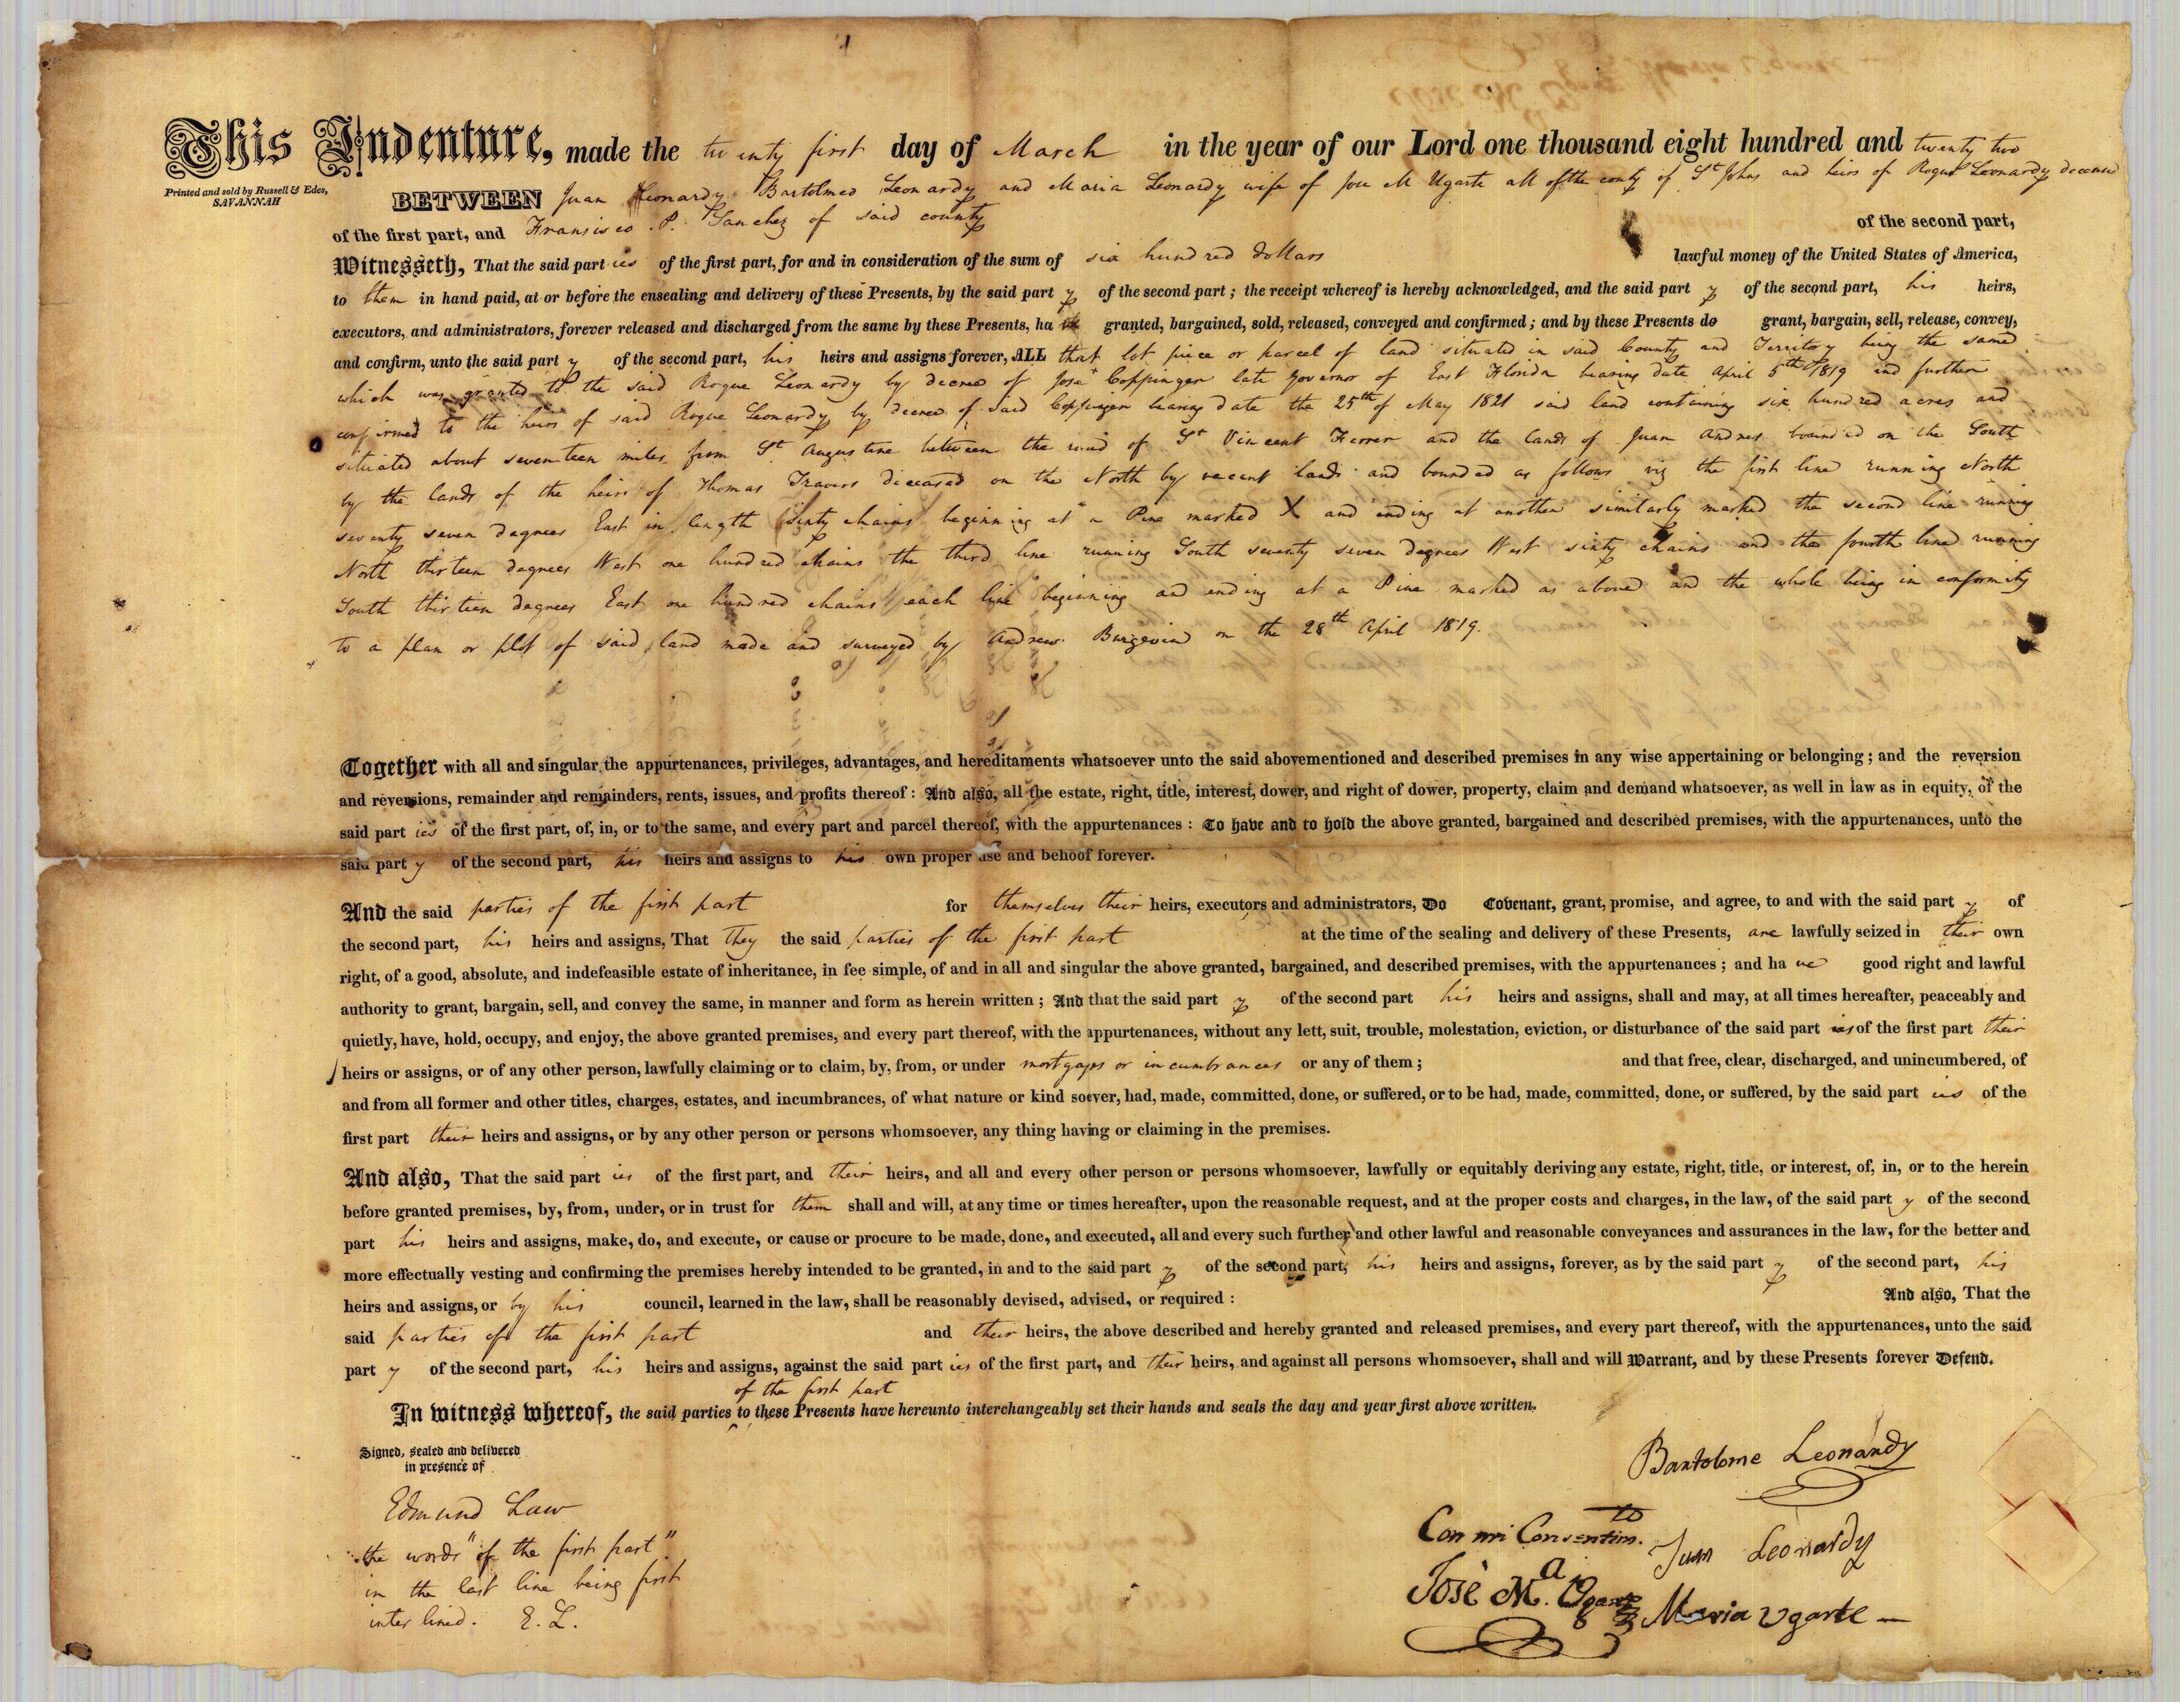 This Indenture, made the twenty first day of March in the year of our Lord one thousand eight hundred and twenty two
Printed and sold by Russell & Edes,
SAVANNAH
BETWEEN Juan Leonardy Bartolmeo Leonardy and Maria Leonardy wife of Jose M Ugarte all of the county of St Johns and heirs of Rogue Leonardy deceased
of the first part, and Fransisco P. Sanchez of said county of the second part,
Witnesseth, That the said part ies of the first part, for and in consideration of the sum of six hundred dollars lawful money of the United States of America,
to them in hand paid, at or before the ensealing and delivery of these Presents, by the said part y of the second part; the receipt whereof is hereby acknowledged, and the said part y of the second part, his heirs,
executors, and administrators, forever released and discharged from the same by these Presents, ha ve granted, bargained, sold, released, conveyed and confirmed; and by these Presents do grant, bargain, sell, release, convey,
and confirm, unto the said part y of the second part, his heirs and assigns forever, ALL that lot piece or parcel of land situated in said County and Territory being the same
which was granted to the said Rogue Leonardy by decree of Jose Coppinger late Governor of East Florida bearing date April 5th 1819 and further
confirmed to the heirs of said Rogue Leonardy by decree of said Coppinger bearing date the 25th of May 1821 said land containing six hundred acres and
situated about seventeen miles from St Augustine between the road of St Vincent Ferrer and the lands of Juan Andres bounded on the South
by the lands of the heirs of Thomas Travers deceased on the North by vacant lands and bounded as follows viz the first line running North
seventy seven degrees East in length sixty chains beginning at a Pine marked X and ending at another similarly marked the second line running
North thirteen degrees West one hundred chains the third line running South seventy seven degrees West sixty chains and the fourth line running
South thirteen degrees East one hundred chains each line beginning and ending at a Pine marked as above and the whole being in conformity
to a plan or plot of said land made and surveyed by Andrew Burgevin on the 28th April 1819.
Together with all and singular the appurtenances, privileges, advantages, and hereditaments whatsoever unto the said abovementioned and described premises in any wise appertaining or belonging; and the reversion
and reversions, remainder and remainders, rents, issues, and profits thereof: And also, all the estate, right, title, interest, dower, and right of dower, property, claim and demand whatsoever, as well in law as in equity, of the
said part ies of the first part, of, in, or to the same, and every part and parcel thereof, with the appurtenances: To have and to hold the above granted, bargained and described premises, with the appurtenances, unto the
said part y of the second part, his heirs and assigns to his own proper use and behoof forever.
And the said parties of the first part for themselves their heirs, executors and administrators, Do Covenant, grant, promise, and agree, to and with the said part y of
the second part, his heirs and assigns, That they the said parties of the first part at the time of the sealing and delivery of these Presents, are lawfully seized in their own
right, of a good, absolute, and indefeasible estate of inheritance, in fee simple, of and in all and singular the above granted, bargained, and described premises, with the appurtenances; and ha ve good right and lawful
authority to grant, bargain, sell, and convey the same, in manner and form as herein written; And that the said part y of the second part his heirs and assigns, shall and may, at all times hereafter, peaceably and
quietly, have, hold, occupy, and enjoy, the above granted premises, and every part thereof, with the appurtenances, without any lett, suit, trouble, molestation, eviction, or disturbance of the said part ies of the first part their
heirs or assigns, or of any other person, lawfully claiming or to claim, by, from, or under mortgages or incumbrances or any of them; and that free, clear, discharged, and unincumbered, of
and from all former and other titles, charges, estates, and incumbrances, of what nature or kind soever, had, made, committed, done, or suffered, or to be had, made, committed, done, or suffered, by the said part ies of the
first part their heirs and assigns, or by any other person or persons whomsoever, any thing having or claiming in the premises.
And also, That the said part ies of the first part, and their heirs, and all and every other person or persons whomsoever, lawfully or equitably deriving any estate, right, title, or interest, of, in, or to the herein
before granted premises, by, from, under, or in trust for them shall and will, at any time or times hereafter, upon the reasonable request, and at the proper costs and charges, in the law, of the said part y of the second
part his heirs and assigns, make, do, and execute, or cause or procure to be made, done, and executed, all and every such further and other lawful and reasonable conveyances and assurances in the law, for the better and
more effectually vesting and confirming the premises hereby intended to be granted, in and to the said part y of the second part, his heirs and assigns, forever, as by the said part y of the second part, his
heirs and assigns, or by his council, learned in the law, shall be reasonably devised, advised, or required: And also, That the
said parties of the first part and their heirs, the above described and hereby granted and released premises, and every part thereof, with the appurtenances, unto the said
part y of the second part, his heirs and assigns, against the said part ies of the first part, and their heirs, and against all persons whomsoever, shall and will Warrant, and by these Presents forever Defend.
of the first part
In witness whereof, the said parties to these Presents have hereunto interchangeably set their hands and seals the day and year first above written.
Signed, sealed and delivered
in presence of
Edmund Law
the words "of the first part"
in the last line being first
interlined. E. L.
Bartolome Leonardy
Con mi Consentimto
Juan Leonardy
José Ma. Ugarte
Maria Ugarte